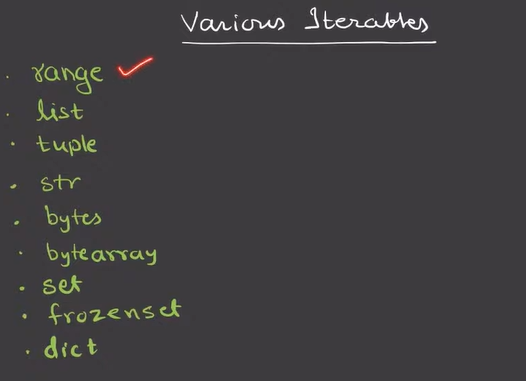 Various Iterables
range
list
tuple
str
bytes
bytearray
set
frozenset
dict